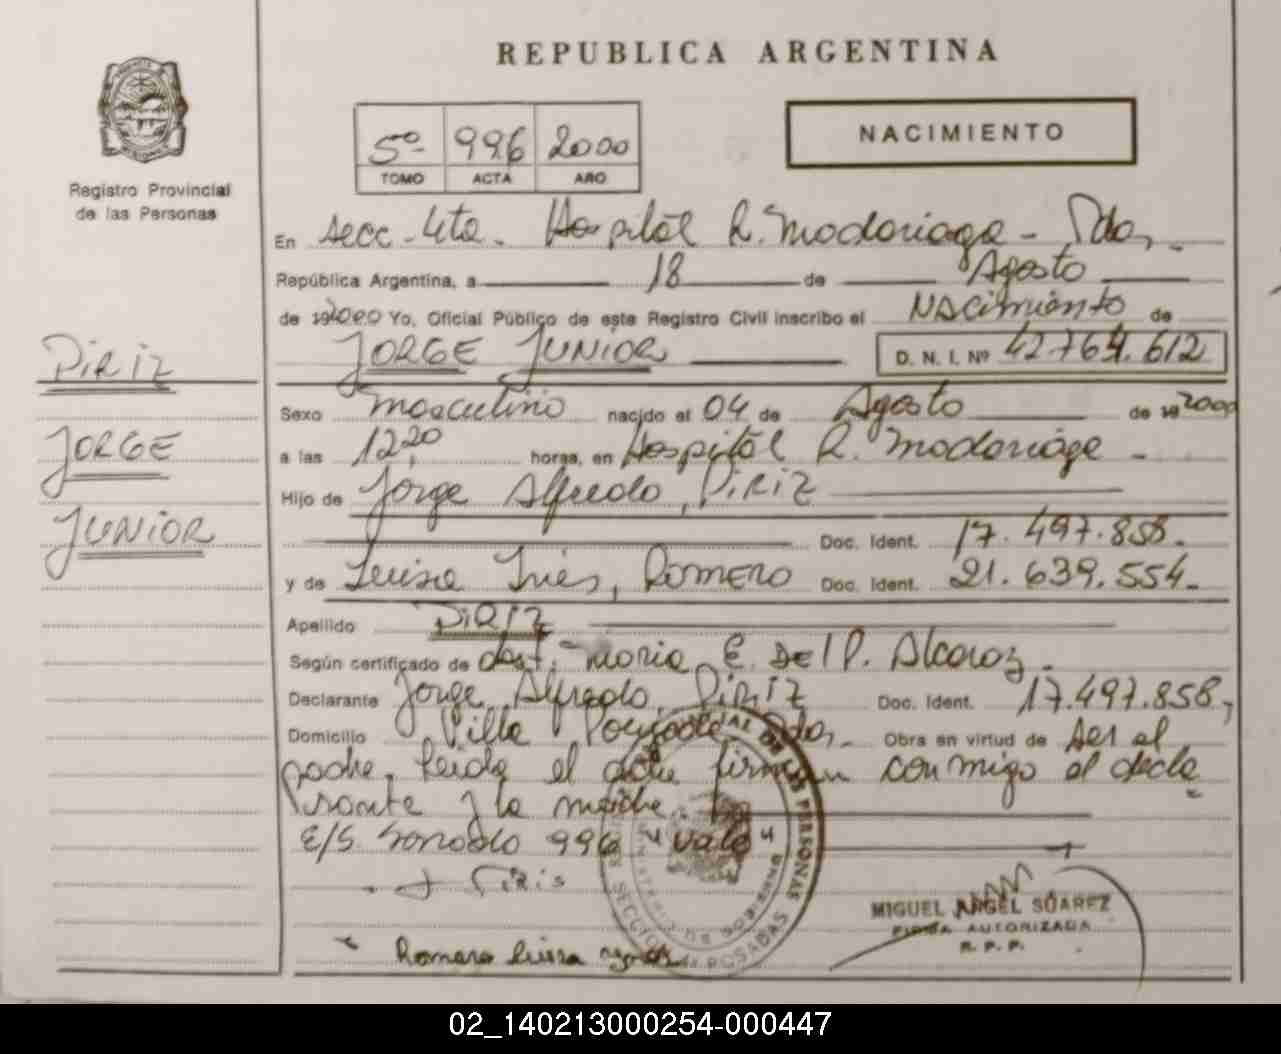 REPUBLICA ARGENTINA
Registro Provincial
de las Personas
5º 996 2000
TOMO ACTA AÑO
NACIMIENTO
En secc. 4ta. Hospital R. Madariaga - Pdas,
República Argentina, a 18 de Agosto
de 192000 Yo, Oficial Público de este Registro Civil inscribo el Nacimiento de
JORGE JUNIOR D. N. I. Nº 42.764.612
PIRIZ
JORGE
JUNIOR
Sexo masculino nacido el 04 de Agosto de 192000
a las 12,20 horas, en Hospital R. Madariaga -
Hijo de Jorge Alfredo, PIRIZ
Doc. Ident. 17.497.858.
y de Luisa Inés, ROMERO Doc. Ident. 21.639.554-
Apellido PIRIZ
Según certificado de obst. María E. Del P. Alcaraz.
Declarante Jorge Alfredo, PIRIZ Doc. Ident. 17.497.858,
Domicilio Villa Poujade Pdas,- Obra en virtud de ser el
padre, leída el acta firman conmigo el decla
rante y la madre.
E/S. Borrado 996 "Vale"
Romero Luisa
MIGUEL ANGEL SUAREZ
FIRMA AUTORIZADA
R. P. P.
02_140213000254-000447